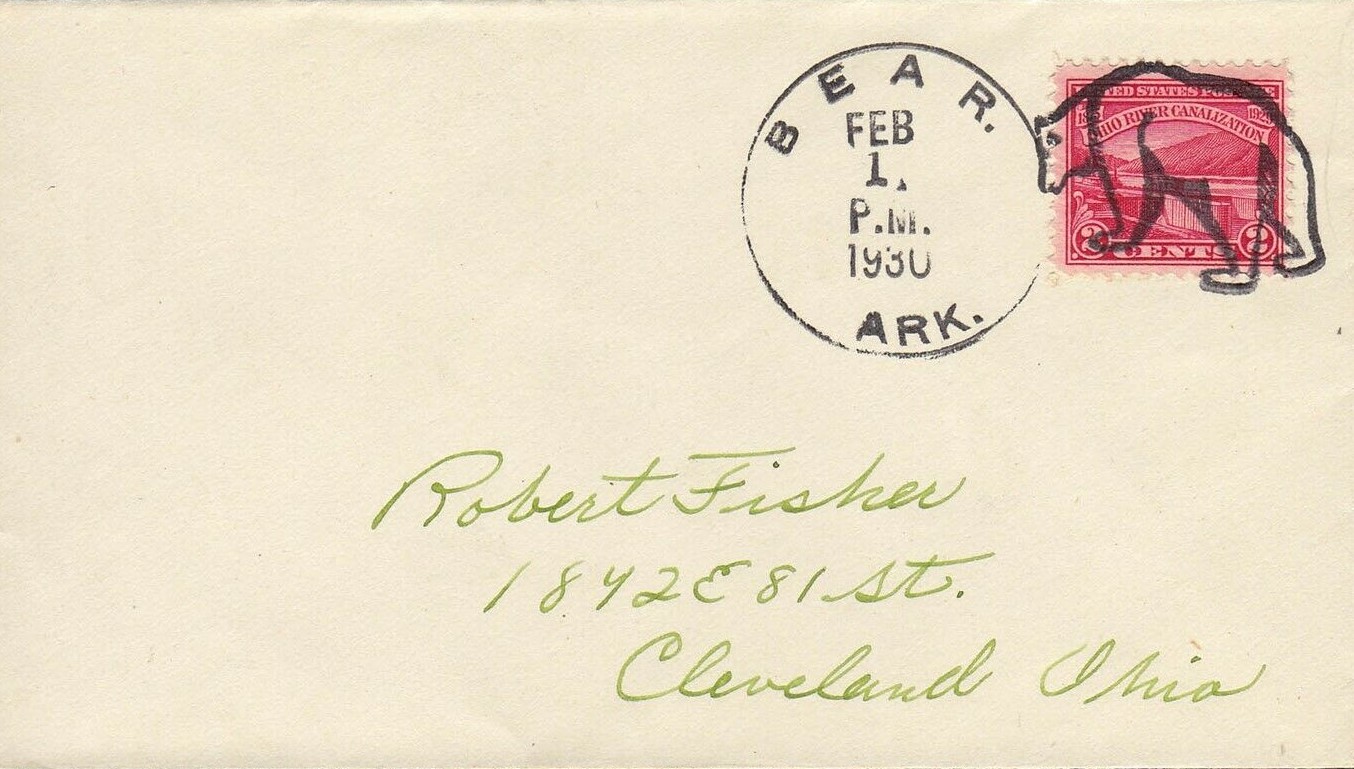 BEAR.
FEB
1.
P.M.
1930
ARK.
UNITED STATES POSTAGE
1929
OHIO RIVER CANALIZATION
2 CENTS 2
Robert Fisher
1842 E 81 St.
Cleveland Ohio